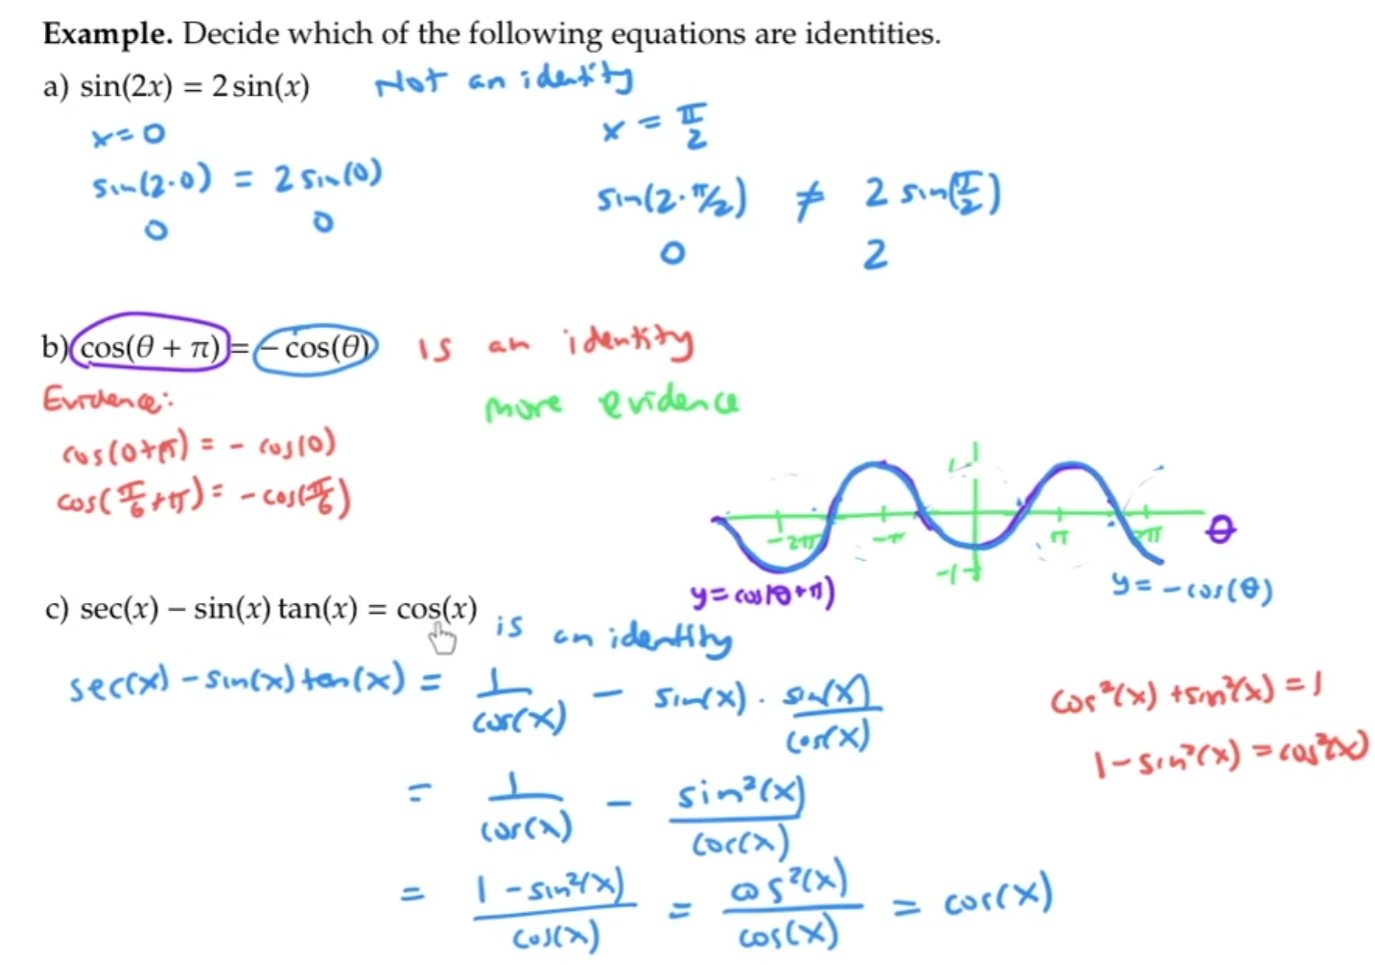 Example. Decide which of the following equations are identities.
a) sin(2x) = 2 sin(x) Not an identity
x = 0 x = π/2
sin(2·0) = 2 sin(0) sin(2·π/2) ≠ 2 sin(π/2)
0 0 0 2
b) cos(θ + π) = − cos(θ) is an identity
Evidence: more evidence
cos(0+π) = - cos(0)
cos(π/6 + π) = -cos(π/6)
1
-2π -π π 2π θ
-1
y = cos(θ+π) y = -cos(θ)
c) sec(x) − sin(x) tan(x) = cos(x) is an identity
sec(x) - sin(x) tan(x) = 1/cos(x) - sin(x) · sin(x)/cos(x) cos²(x) + sin²(x) = 1
1 - sin²(x) = cos²(x)
= 1/cos(x) - sin²(x)/cos(x)
= 1 - sin²(x)/cos(x) = cos²(x)/cos(x) = cos(x)